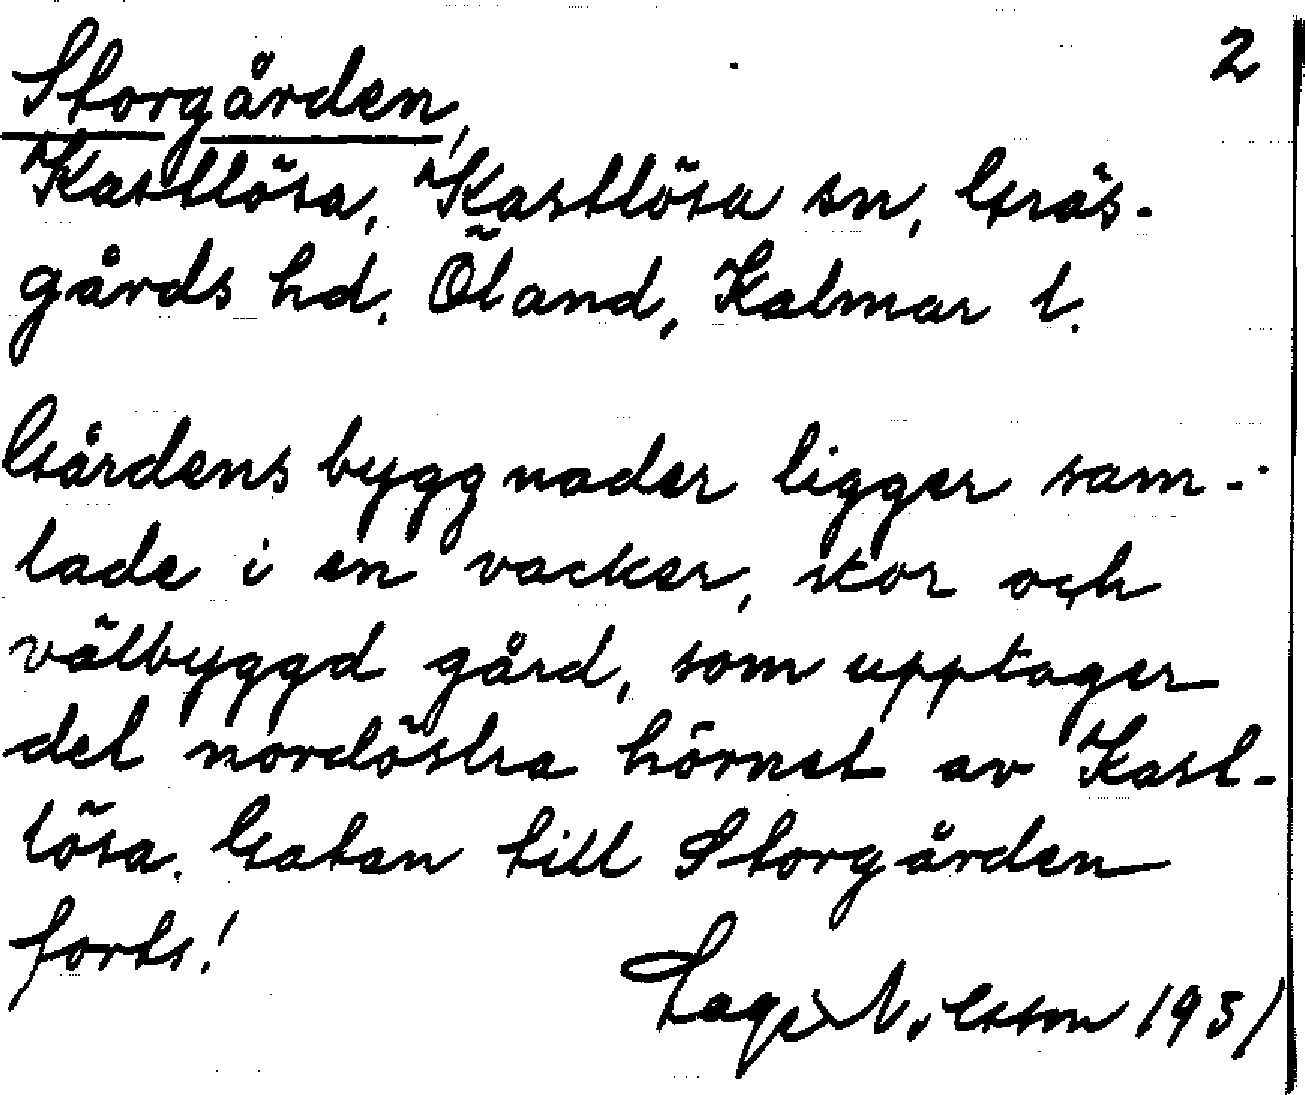 2
Storgården,
Kastlösa, Kastlösa sn, Gräs-
gårds hd. Öland, Kalmar l.
Gårdens byggnader ligger sam-
lade i en vacker, stor och
välbyggd gård, som upptager
det nordöstra hörnet av Kast-
lösa. Gatan till Storgården
forts!
Nilsson 1931